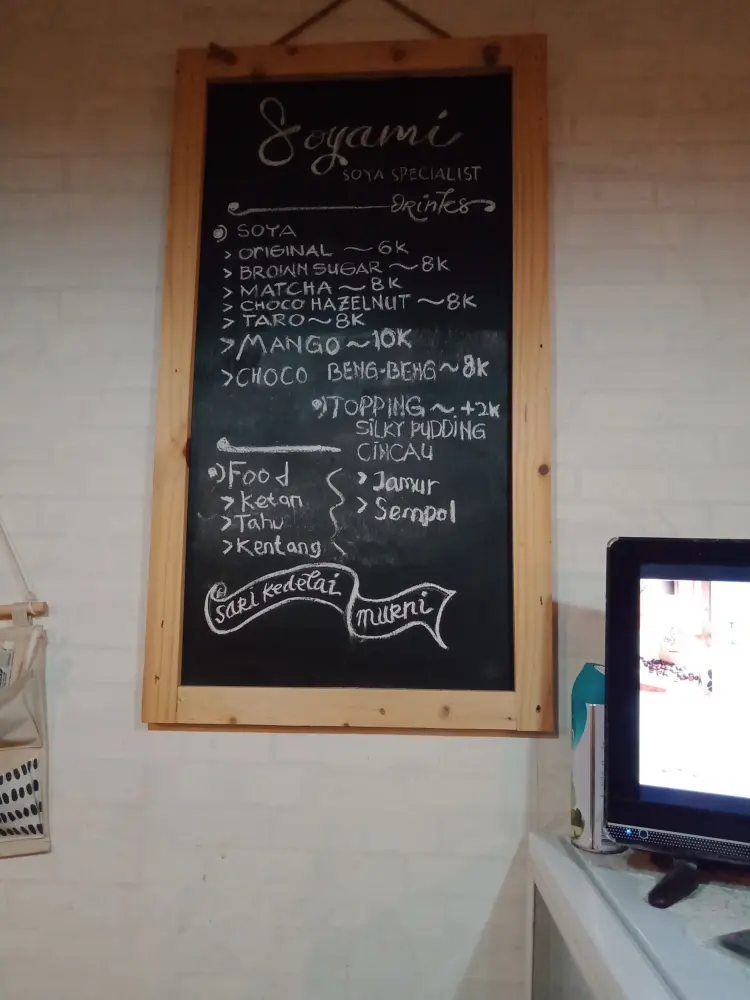 Soyami
SOYA SPECIALIST
DRinks
SOYA
> ORIGINAL ~ 6K
> BROWN SUGAR ~ 8K
> MATCHA ~ 8K
> CHOCO HAZELNUT ~ 8K
> TARO ~ 8K
> MANGO ~ 10K
> CHOCO BENG-BENG ~ 8K
TOPPING ~ +2K
SILKY PUDDING
CINCAU
Food
> Ketan
> Tahu
> Kentang
> Jamur
> Sempol
SARI KEDELAI
MURNI